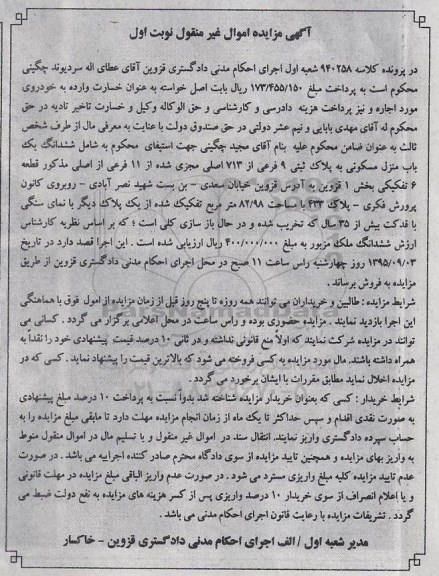 آگهی مزایده اموال غیر منقول نوبت اول
در پرونده کلاسه ۹۴۰۲۵۸ شعبه اول اجرای احکام مدنی دادگستری قزوین آقای عطای اله سردیوند چگینی
محکوم است به پرداخت مبلغ ۱۷۳/۴۵۵/۱۵۰ ریال بابت اصل خواسته به عنوان خسارت وارده به خودروی
مورد اجاره و نیز پرداخت هزینه دادرسی و کارشناسی و حق الوکاله وکیل و خسارت تاخیر تادیه در حق
محکوم له آقای مهدی بابایی و نیم عشر دولتی در حق صندوق دولت با عنایت به معرفی مال از طرف شخص
ثالث به عنوان ضامن محکوم علیه بنام آقای مجید چگینی جهت استیفای محکوم به شامل ششدانگ یک
باب منزل مسکونی به پلاک ثبتی ۹ فرعی از ۷۱۳ اصلی مجزی شده از ۱۱ فرعی از اصلی مذکور قطعه
۶ تفکیکی بخش ۱ قزوین به آدرس قزوین خیابان سعدی - بن بست شهید نصر آبادی - روبروی کانون
پرورش فکری - پلاک ۴۳۳ با مساحت ۸۲/۹۸ متر مربع تفکیک شده از یک پلاک دیگر با نمای سنگی
با قدکت بیش از ۳۵ سال که تخریب شده و در حال باز سازی کلی است ؛ که بر اساس نظریه کارشناس
ارزش ششدانگ ملک مزبور به مبلغ ۴۰۰/۰۰۰/۰۰۰ ریال ارزیابی شده است . این اجرا قصد دارد در تاریخ
۱۳۹۵/۰۹/۰۳ روز چهارشنبه راس ساعت ۱۱ صبح در محل اجرای احکام مدنی دادگستری قزوین از طریق
مزایده به فروش برساند .
شرایط مزایده : طالبین و خریداران می توانند همه روزه تا پنج روز قبل از زمان مزایده از امول فوق با هماهنگی
این اجرا بازدید نمایند . مزایده حضوری بوده و راس ساعت در محل اعلامی بر گزار می گردد . کسانی می
توانند در مزایده شرکت نمایند که اولاً منع قانونی نداشته و در ثانی ۱۰ درصد قیمت پیشنهادی خود را نقداً به
همراه داشته باشند. مال مورد مزایده به کسی فروخته می شود که بالاترین قیمت را پیشنهاد نماید . کسی که در
مزایده اخلال نماید مطابق مقررات با ایشان برخورد می گردد .
شرایط خریدار : کسی که بعنوان خریدار مزایده شناخته شد بدواً نسبت به پرداخت ۱۰ درصد مبلغ پیشنهادی
به صورت نقدی اقدام و سپس حداکثر تا یک ماه از زمان انجام مزایده مهلت دارد تا مابقی مبلغ مزایده را به
حساب سپرده دادگستری واریز نمایند. انتقال سند در اموال غیر منقول و یا تسلیم مال در اموال منقول منوط
به واریز بهای مزایده و همچنین تایید مزایده از سوی دادگاه محترم صادر کننده اجراییه می باشد . در صورت
عدم تایید مزایده کلیه مبلغ واریزی مسترد می شود . در صورت عدم واریز الباقی مبلغ مزایده در مهلت قانونی
و یا اعلام انصراف از سوی خریدار ۱۰ درصد واریزی پس از کسر هزینه های مزایده به نفع دولت ضبط می
گردد . تشریفات مزایده با رعایت قانون اجرای احکام مدنی می باشد .
مدیر شعبه اول / الف اجرای احکام مدنی دادگستری قزوین - خاکسار